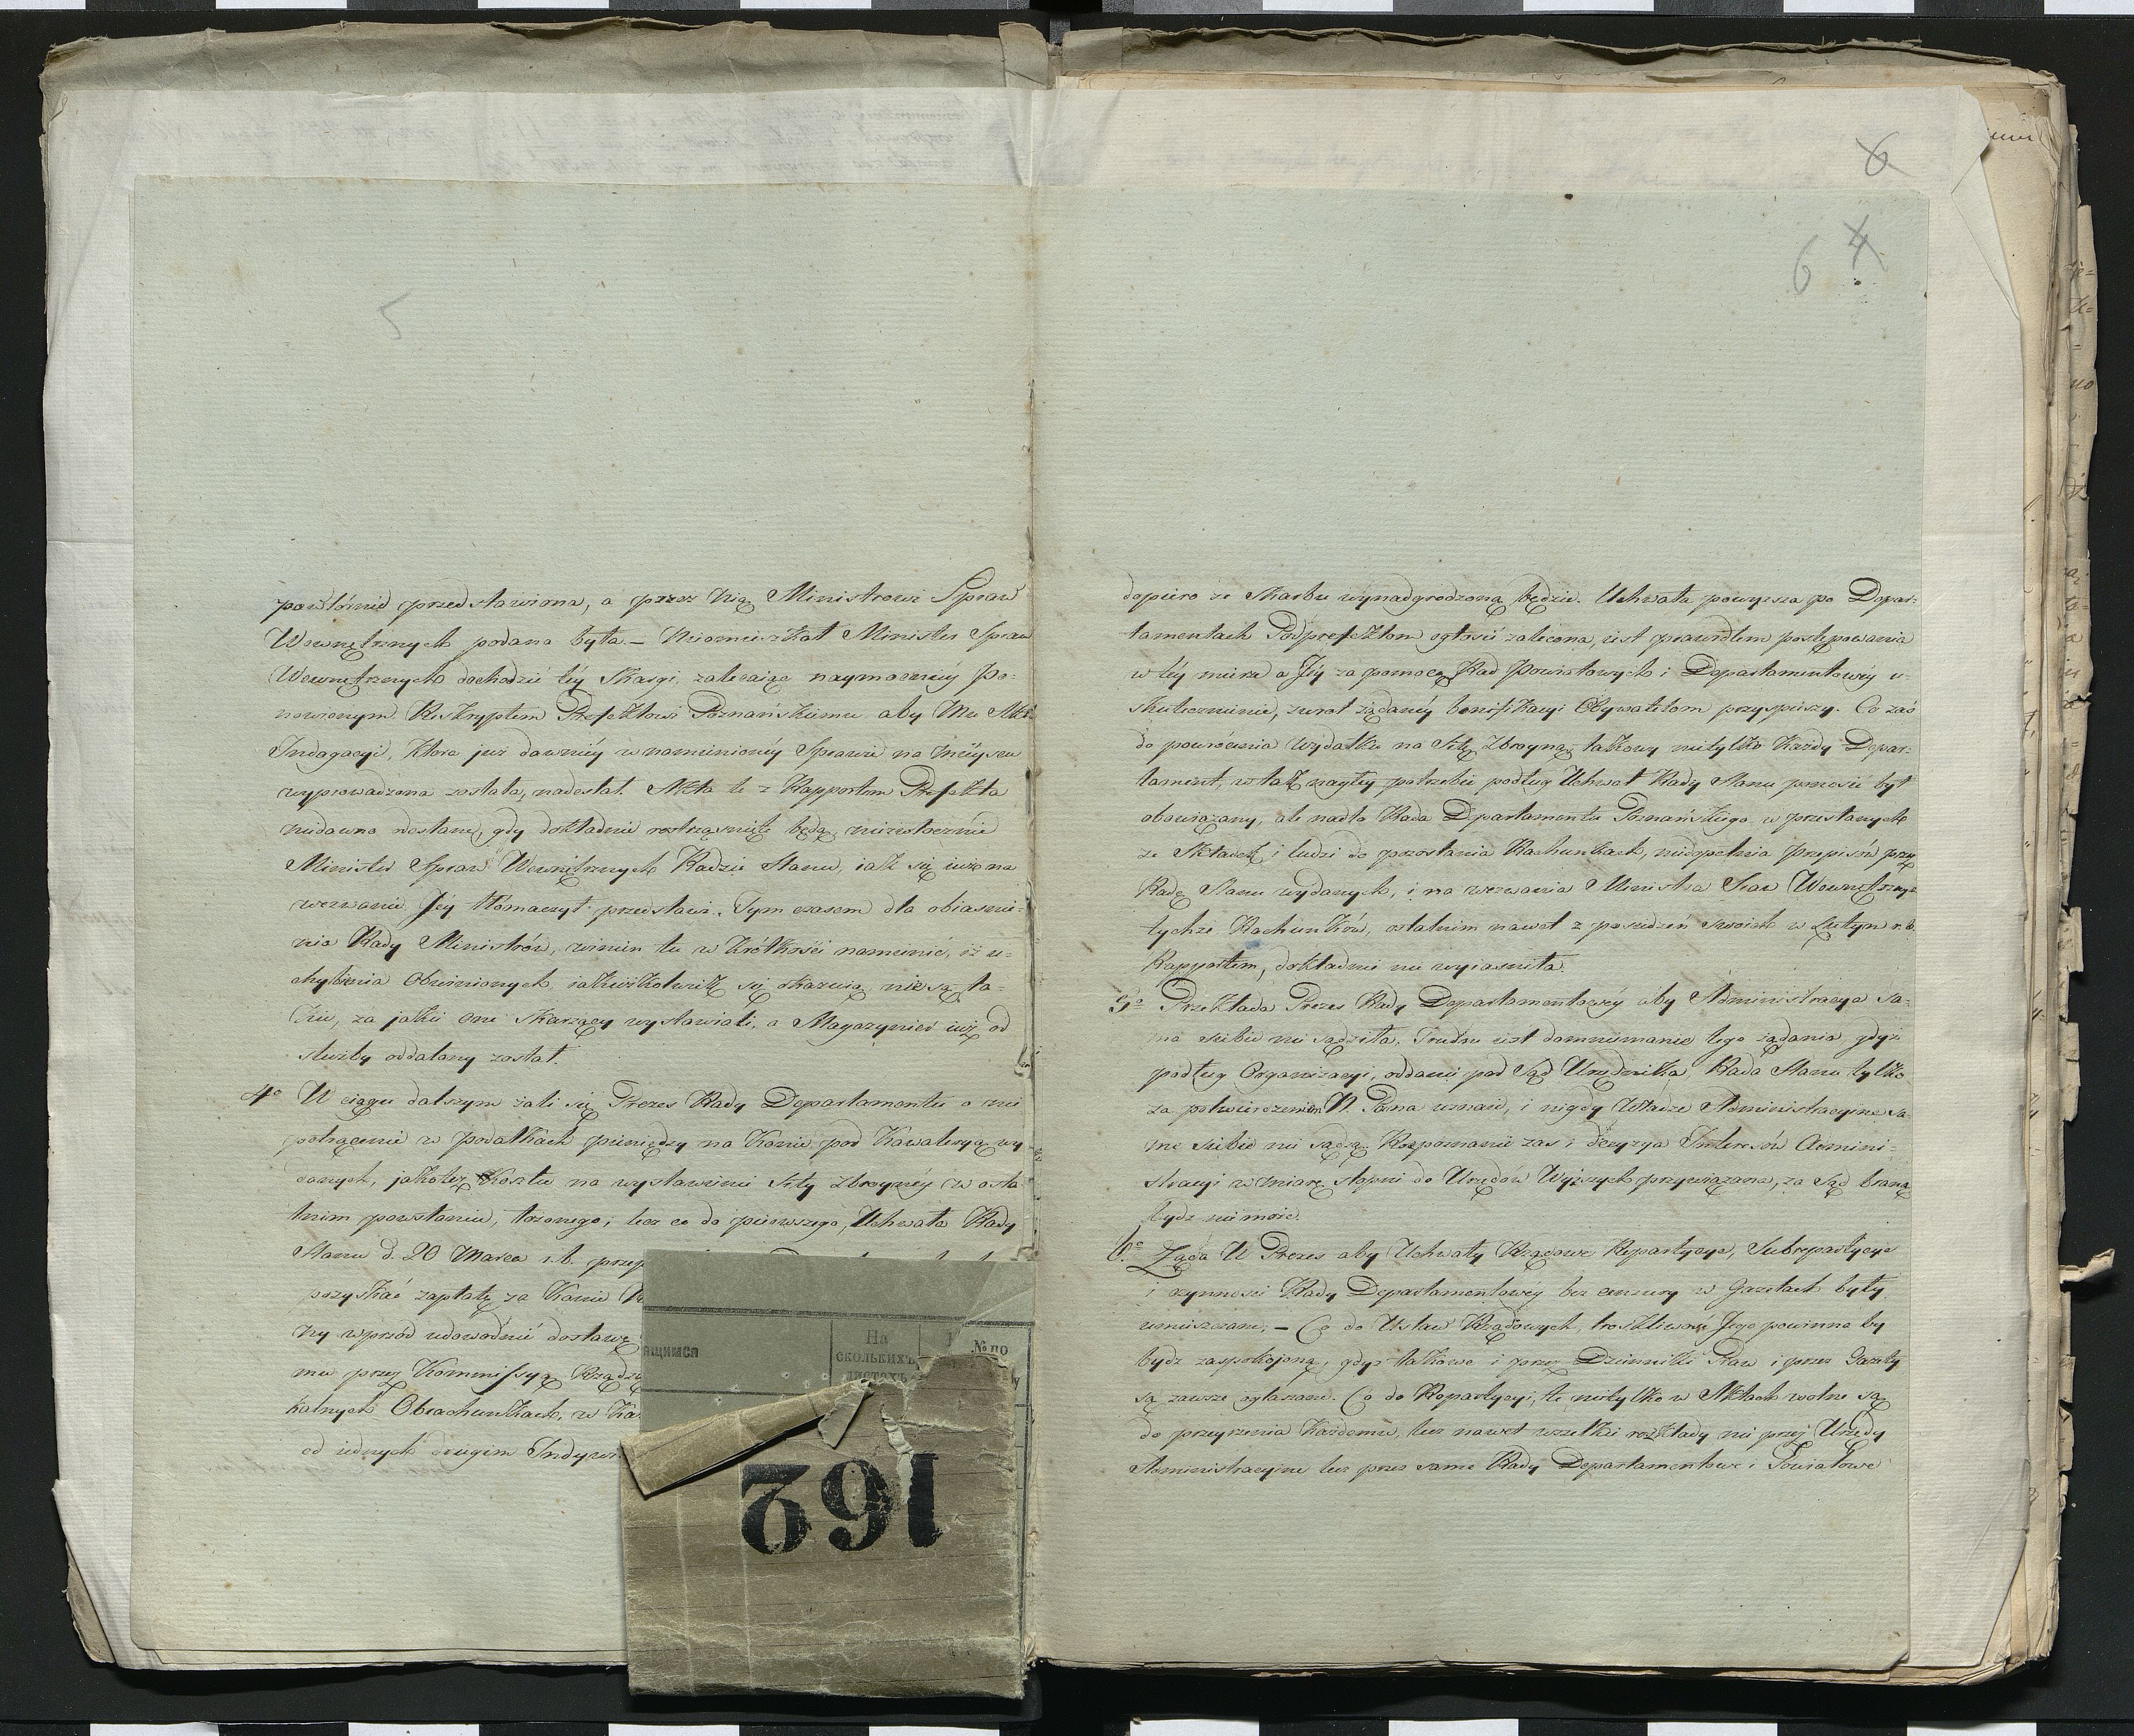 5
powtórnie przedstawiona, a przez nią Ministrowi Spraw
Wewnętrznych podana była. – Nieomieszkał Minister Spraw
Wewnętrznych dochodzić téy Skargi, zalecaiąc naymocniéy po-
nowionym Reskryptem Prefektowi Poznańskiemu aby Mu Akta
Indagacyi, która już dawniéy w namienionéy Sprawie na mieyscu
wyprowadzona została, nadesłał. Akta te z Rapportem Prefekta
niedawno nadesłane, gdy dokładnie roztrząśnięte będą, niezwłocznie
Minister Spraw Wewnętrznych Radzie Stanu, iak się iuż na
wezwanie Jéy tłómaczył przedstawi. Tym czasem dla obiaśnie-
nia Rady Ministrów, winien tu w krótkości namienić, iż u-
chybienia Obwinionych iakieżkolwiek się okazuią nie są ta-
kie, za jakie one Skarzący wystawiali, a Magazynier iuż od
służby oddalony został.
4o W ciągu dalszym żali się Prezes Rady Departamentu o nie
potrącenie w podatkach pieniędzy na Konie pod Kawaleryą wy-
danych, jakoteż Kosztu na wystawienie Siły Zbroynéy w osta
tnim powstaniu, łożonego; lecz co do pierwszego, Uchwała Rady
Stanu d. 20 Marca r.b. przep
pozyskać zapłatę za Konie
ny wprzód udowodnić dostawę
mu przez Kommissyą Rządz
kalnych Obrachunkach, w Ka
od iednych drugim Indywi
ащимся
На
сколькихъ
листахъ
№ по
162
6
6 4
dopiero ze Skarbu wynadgrodzoną będzie. Uchwała powyższa po Depar-
tamentach Podprefektom ogłosić zalecona, iest prawidłem postępowania
w téy mierze a Jéy za pomocą Rad Powiatowych i Departamentowéy u-
skutecznienie, zwrot żądanéy bonifikacyi Obywatelom przyspieszy. Co zaś
do powrócenia wydatku na Siłę Zbroyną, takowy nietylko Każdy Depar-
tament, w tak nagłey potrzebie podług Uchwał Rady Stanu ponosić był
obowiązany, ale nadto Rada Dpartamentu Poznańskiego w przesłanych
ze Składek i ludzi do powstania Rachunkach, niedopełnia przepisów przez
Radę Stanu wydanych, i na wezwania Ministra Spraw Wewnętrznych
tychże Rachunków, ostatnim nawet z posiedzeń swoich w Lutym r. b.
Rapportem, dokładnie nie wyiaśniła.
5o Przekłada Prezes Rady Departamentowéy aby Administracya sa-
ma siebie nie sądziła. Trudne iest domniemanie tego żądania gdyż
podług Organizacyi, oddanie pod Sąd Urzędnika, Rada Stanu tylko
za potwierdzeniem N. Pana uznaie, i nigdy Władze Administracyine sa-
me siebie nie sądzą. Rozpoznanie zas i decyzya Interesów Admini-
stracyi w miarę stopni do Urzędów Wyższych przywiązana, za Sąd braną
bydź nie może.
6o Żąda W Prezes aby Uchwały Rządowe Repartycye, Subrepartycye
i czynności Rady Departamentowéy bez cenzury w Gazetach były
umieszczane; – Co do Ustaw Rządowych, troskliwość Jego powinna by
bydź zaspokojoną, gdyż takowe i przez Dzienniki Praw i przez Gazety
są zawsze ogłaszane. Co do Repartycyi, te nietylko w Aktach wolne są
do przeyrzenia Każdemu, lecz nawet wszelkie rozkłady nie przez Urzędy
Administracyine lecz przez same Rady Departamentowe i Powiatowe